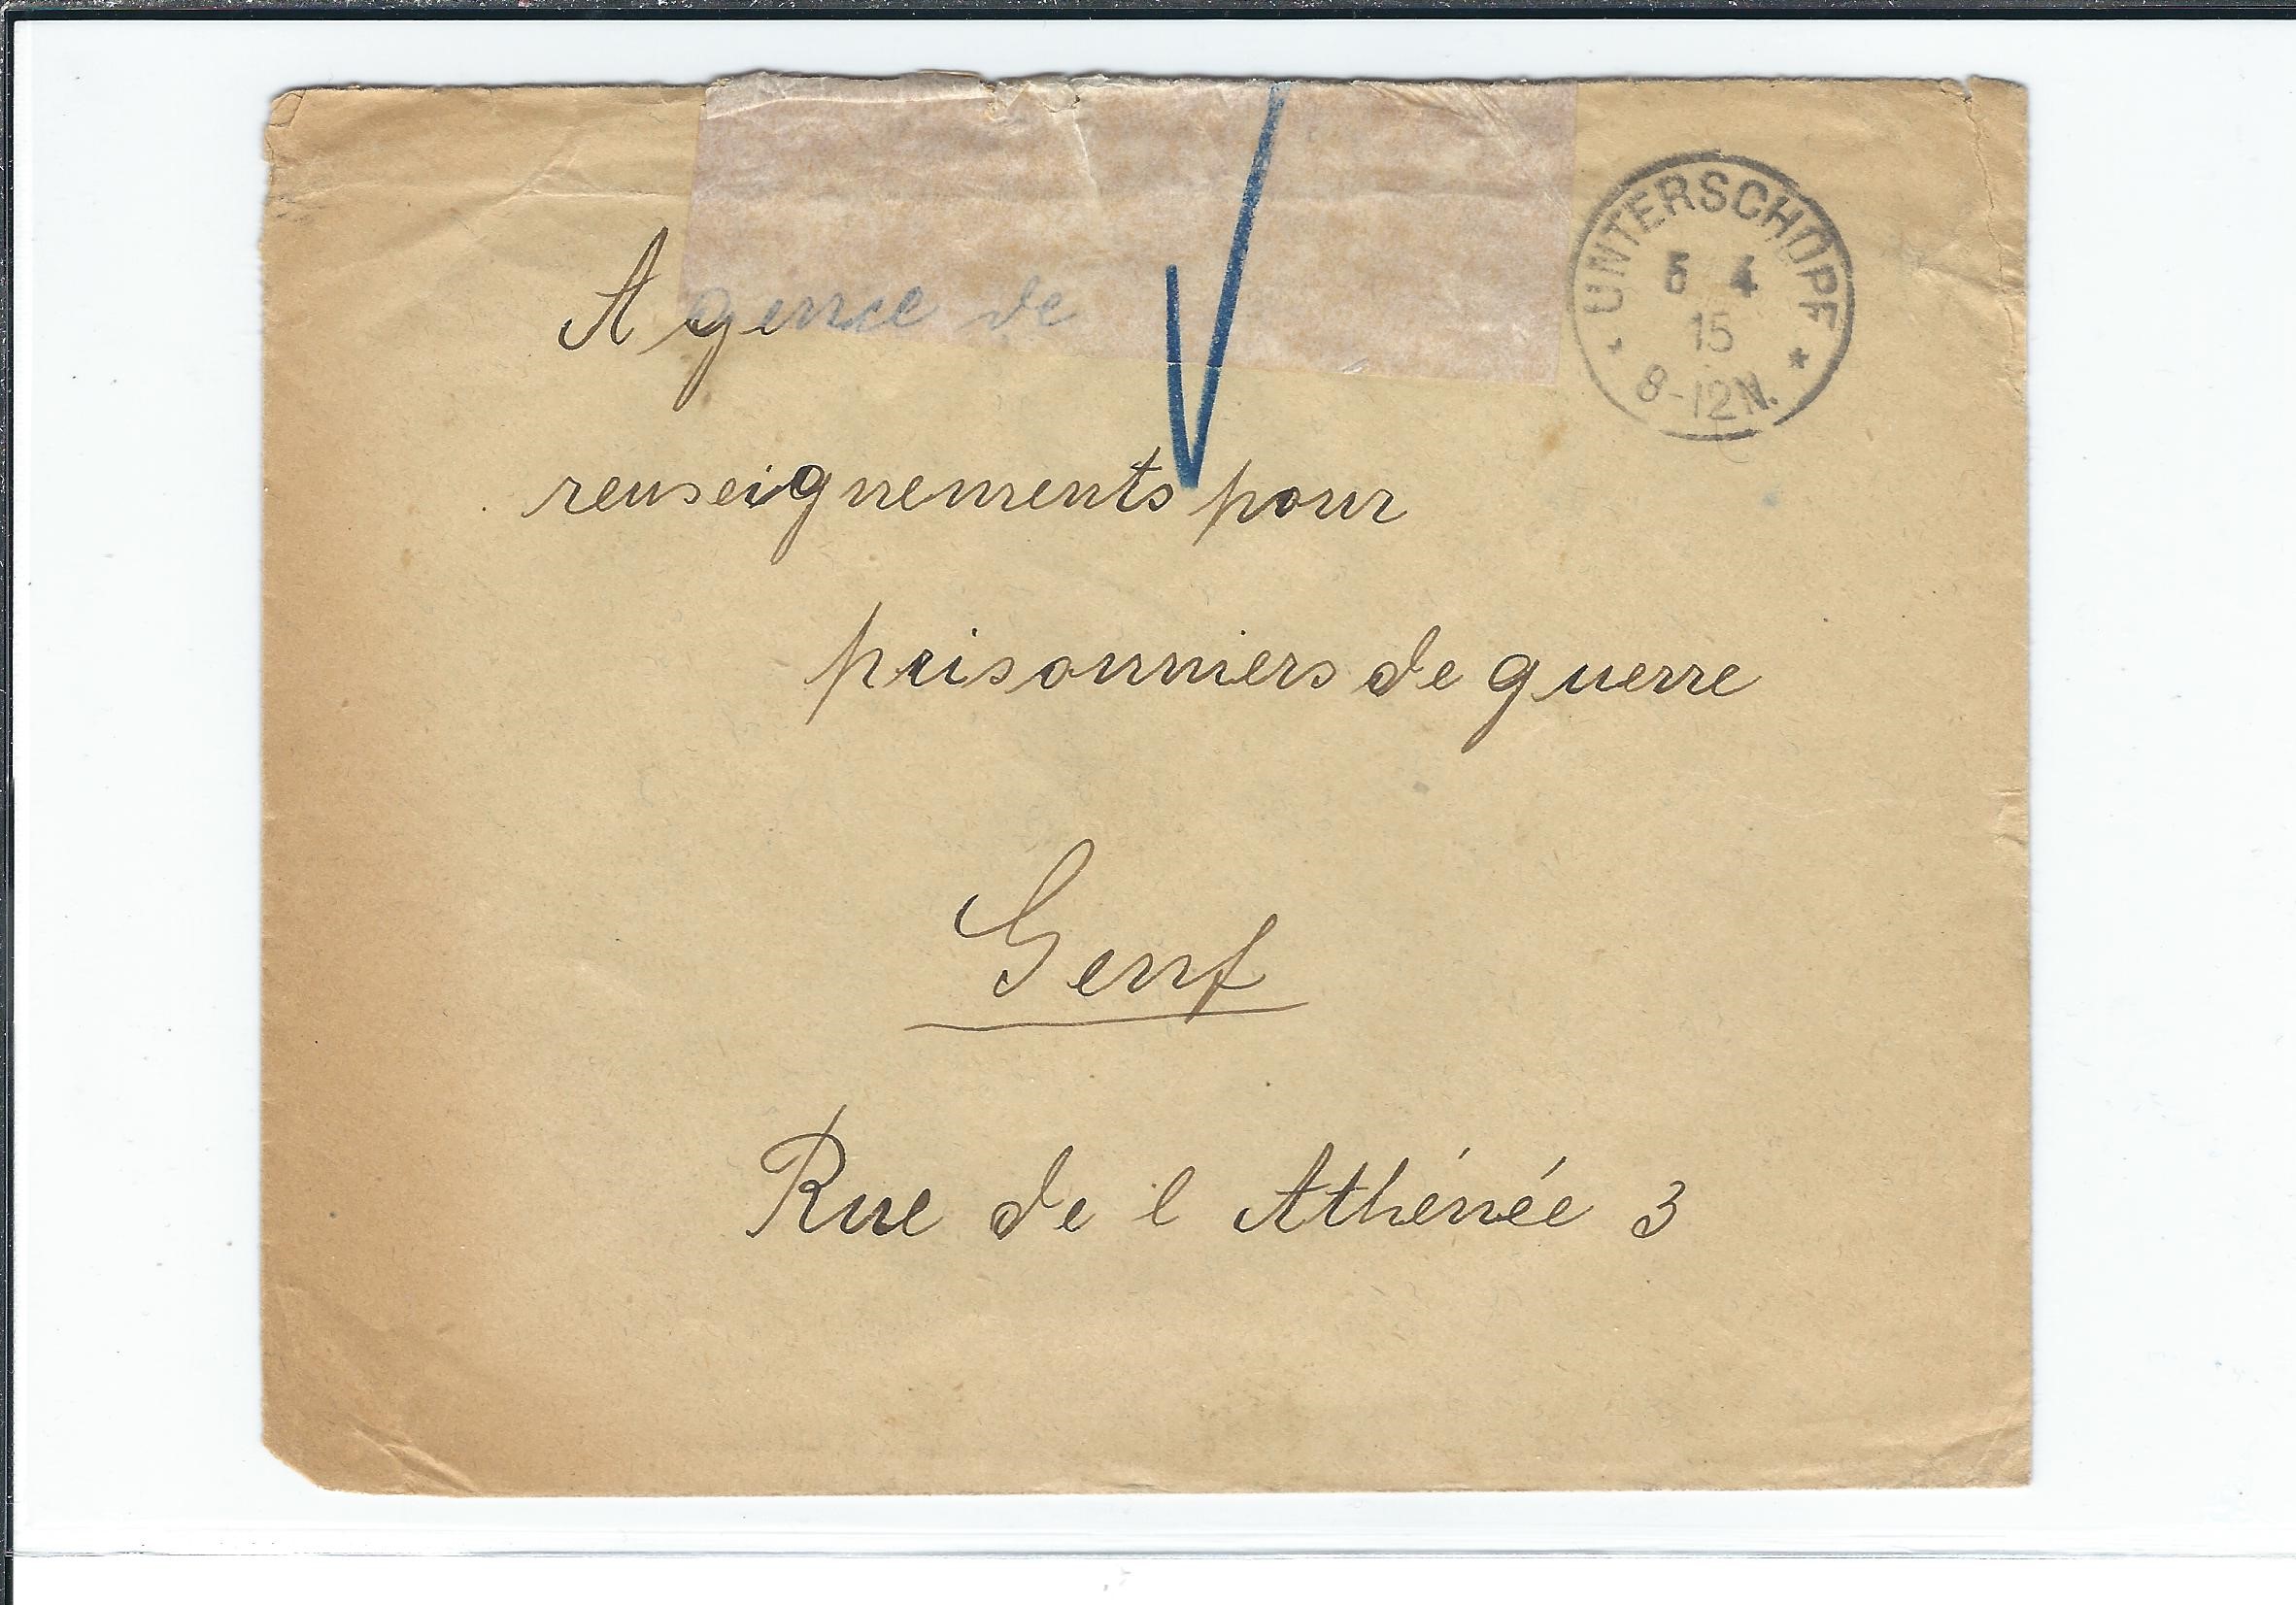 UNTERSCHÜPF
5 4
15
8-12N.
Agence de
renseignements pour
prisonniers de guerre
Genf
Rue de l Athénée 3